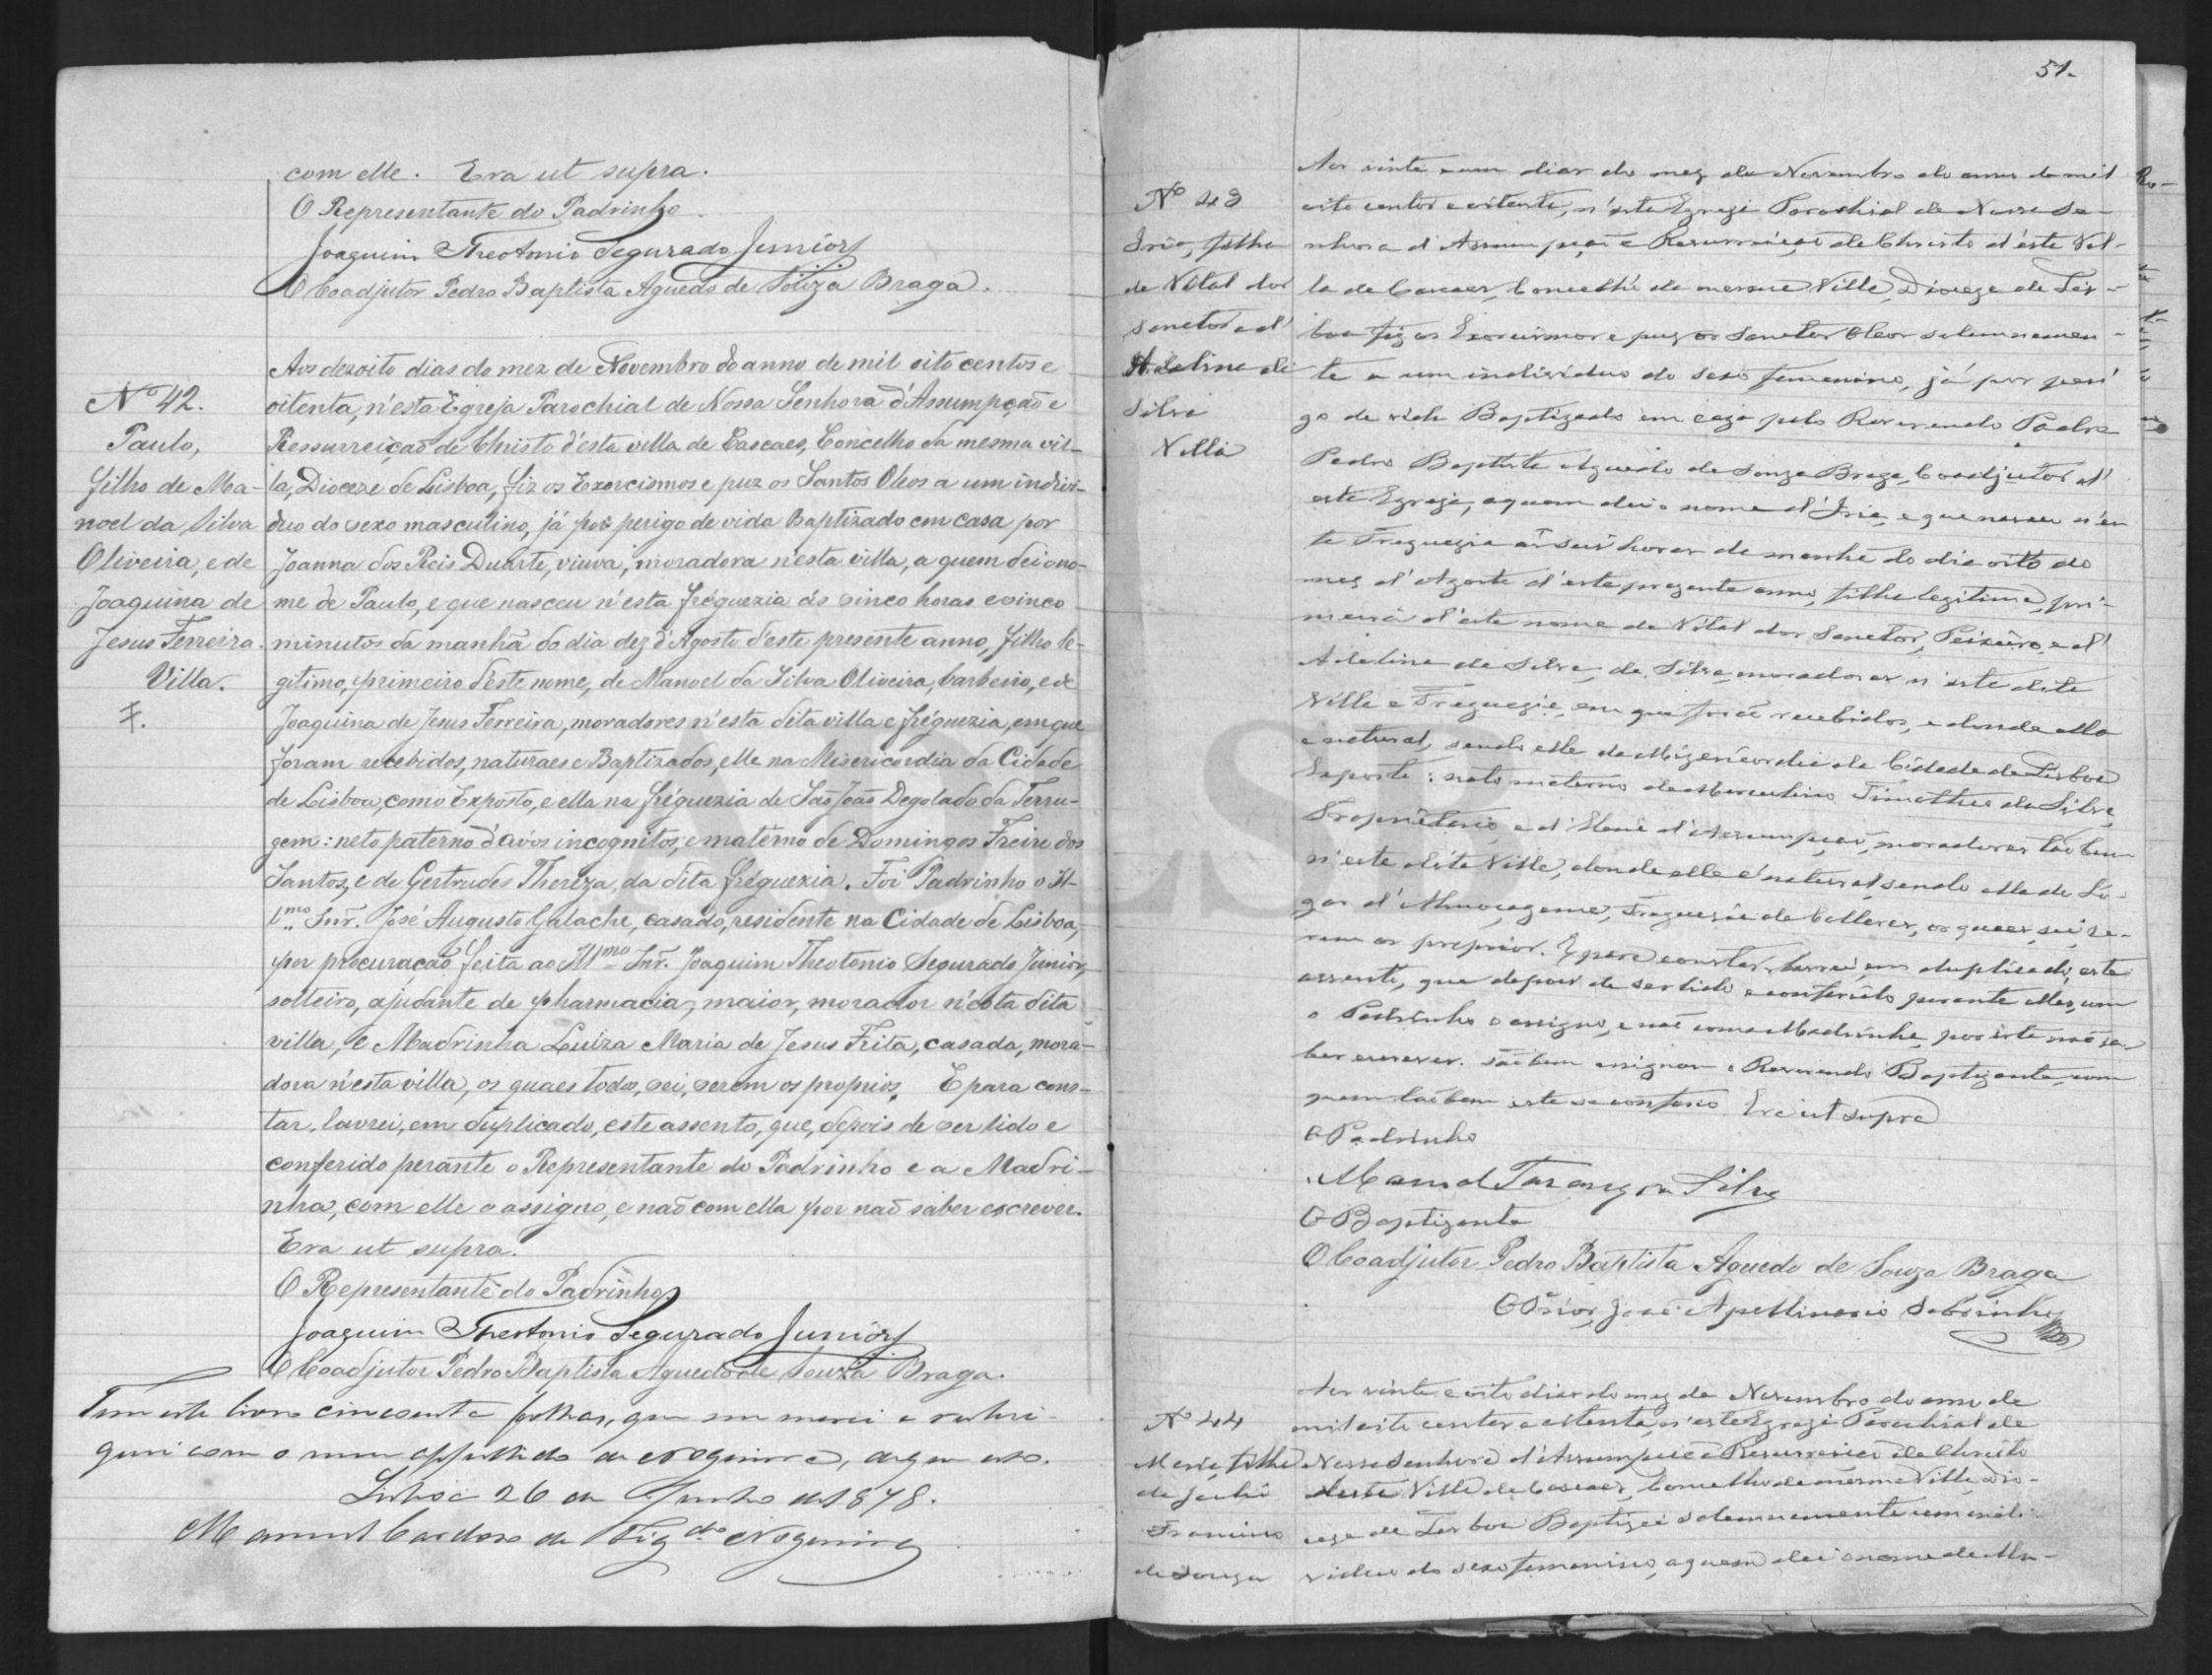 com elle. Era ut supra.
O Representante do Padrinho
Joaquim Theotonio Segurado Junior
O Coadjutor Pedro Baptista Aguedo de Souza Braga.
Nº 42.
Paulo,
filho de Ma-
noel da Silva
Oliveira, e de
Joaquina de
Jesus Ferreira.
Villa.
F.
Aos dezoito dias do mez de Novembro do anno de mil oito centos e
oitenta, n'esta Egreja Parochial de Nossa Senhora d'Assumpçaõ e
Ressurreiçaõ de Christo d'esta villa de Cascaes, Concelho da mesma vil-
la, Dioceze de Lisboa, fiz os Exorcismos e puz os Santos Oleos a um indivi-
duo do sexo masculino, já por perigo de vida Baptizado em casa por
Joanna dos Reis Duarte, viuva, moradora n'esta villa, a quem dei o no-
me de Paulo, e que nasceu n'esta fréguezia ás cinco horas e cinco
minutos da manhã do dia dez d'Agosto d'este presente anno, filho le-
gitimo, primeiro d'este nome, de Manoel da Silva Oliveira, barbeiro, e de
Joaquina de Jesus Ferreira, moradores n'esta dita villa e fréguezia, em que
foram recebidos, naturaes e Baptizados, elle na Misericordia da Cidade
de Lisboa, como Exposto, e ella na fréguezia de Saõ Joaõ Degolado da Terru-
gem: neto paterno d'avós incognitos, e materno de Domingos Freire dos
Santos, e de Gertrudes Thereza, da dita fréguezia. Foi Padrinho o Il-
l.mo Snr. José Augusto Galache, casado, residente na Cidade de Lisboa,
por procuraçaõ feita ao Ill.mo Snr. Joaquim Theotonio Segurado Junior,
solteiro, ajudante de pharmacia, maior, morador n'esta dita
villa, e Madrinha Luiza Maria de Jesus Frita, casada, mora-
dora n'esta villa, os quaes todos, sei, serem os proprios. E para cons-
tar, lavrei, em duplicado, este assento, que, depois de ser lido e
conferido perante o Representante do Padrinho e a Madri-
nha, com elle o assigno, e naõ com ella por naõ saber escrever.
Era ut supra.
O Representante do Padrinho
Joaquim Theotonio Segurado Junior
O Coadjutor Pedro Baptista Aguedo de Souza Braga.
Tem este livro cincoenta folhas, que numerei e rubri-
quei com o meu appellido de Nogueira, de que uso.
Lisboa 26 de Junho de 1878.
Manuel Cardoso de Fig.do Nogueira
51.
Nº 43
Iria, filha
de Vital dos
Sanctos e d'
Adelina da
Silva
Villa
Aos vinte e um dias do mez de Novembro do anno de mil
oito centos e oitenta, n'esta Egreja Parochial de Nossa Se-
nhora d'Assumpçaõ e Resurreiçaõ de Christo d'esta Vil-
la de Cascaes, Concelho da mesma Villa, Dioceze de Lis-
boa fiz os Exorcismos e puz os Sanctos Oleos solemnemen-
te a um individuo do sexo femenino, já por peri-
go de vida Baptizado em caza pelo Reverendo Padre
Pedro Baptista Aguedo de Souza Braga, Coadjutor d'
esta Egreja, a quem dei o nome d'Iria, e que nasceu n'es-
ta Freguezia ás seis horas da manhã do dia oito do
mez d'Agosto d'este prezente anno, filha legitima, pri-
meira d'este nome de Vital dos Sanctos, Peixeiro, e d'
Adelina da Silva, moradores n'esta dita
Villa e Freguezia, em que foraõ recebidos, e donde ella
é natural, sendo elle da Mizericordia da Cidade de Lisboa
Exposto: neta materna de Marcelino Timotheo da Silva,
Proprietario, e d' d'Assumpçaõ, moradores taõbem
n'esta dita Villa, donde elle é natural sendo ella do Lo-
gar d'Almoçageme, Freguezia de Collares, os quaes, sei se-
rem os proprios. E para constar, lavrei em duplicado, este
assento, que depois de ser lido e conferido perante elles, com
o Padrinho o assigno, e naõ com a Madrinha, por esta naõ sa-
ber escrever. Taõbem assignou o Reverendo Baptizante, com
quem taõbem este se conferio. Era ut supra
O Padrinho
Manoel Silva
O Baptizante
O Coadjutor Pedro Baptista Aguedo de Souza Braga
O Prior, José Apollinario Sobrinho
Nº 44
Maria, filha
de
de Souza
Aos vinte e oito dias do mez de Novembro do anno de
mil oito centos e oitenta, n'esta Egreja Parochial de
Nossa Senhora d'Assumpçaõ e Resurreiçaõ de Christo
desta Villa de Cascaes, Concelho da mesma Villa, Dio-
ceze de Lisboa Baptizei solemnemente um indi-
viduo do sexo femenino, a quem dei o nome de Ma-
ADLSB